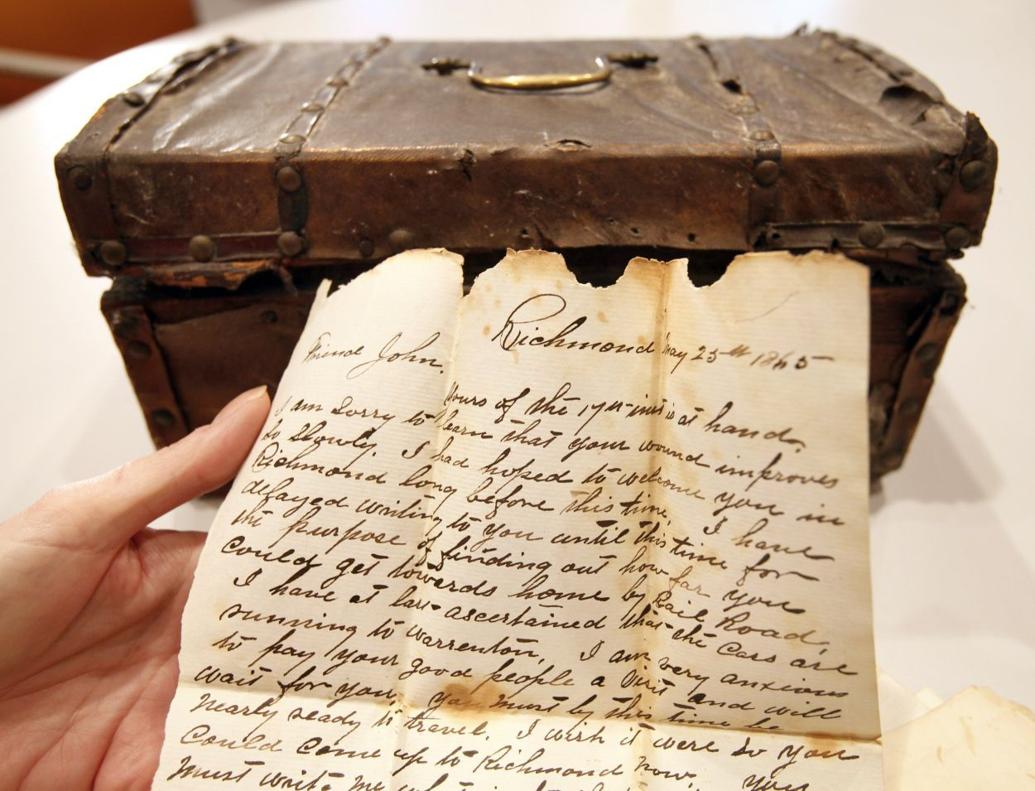 Richmond May 25th 1865
Friend John.
Yours of the 17th inst is at hand.
I am Sorry to learn that your wound improves
so slowly. I had hoped to welcome you in
Richmond long before this time. I have
delayed writing to you until this time for
the purpose of finding out how far you
could get towards home by Rail Road.
I have at last ascertained that the Cars are
running to Warrenton, I am very anxious
to pay your good people a Visit and will
wait for you. You must by this time be
nearly ready to travel. I wish it were so you
could come up to Richmond now. You
must write me